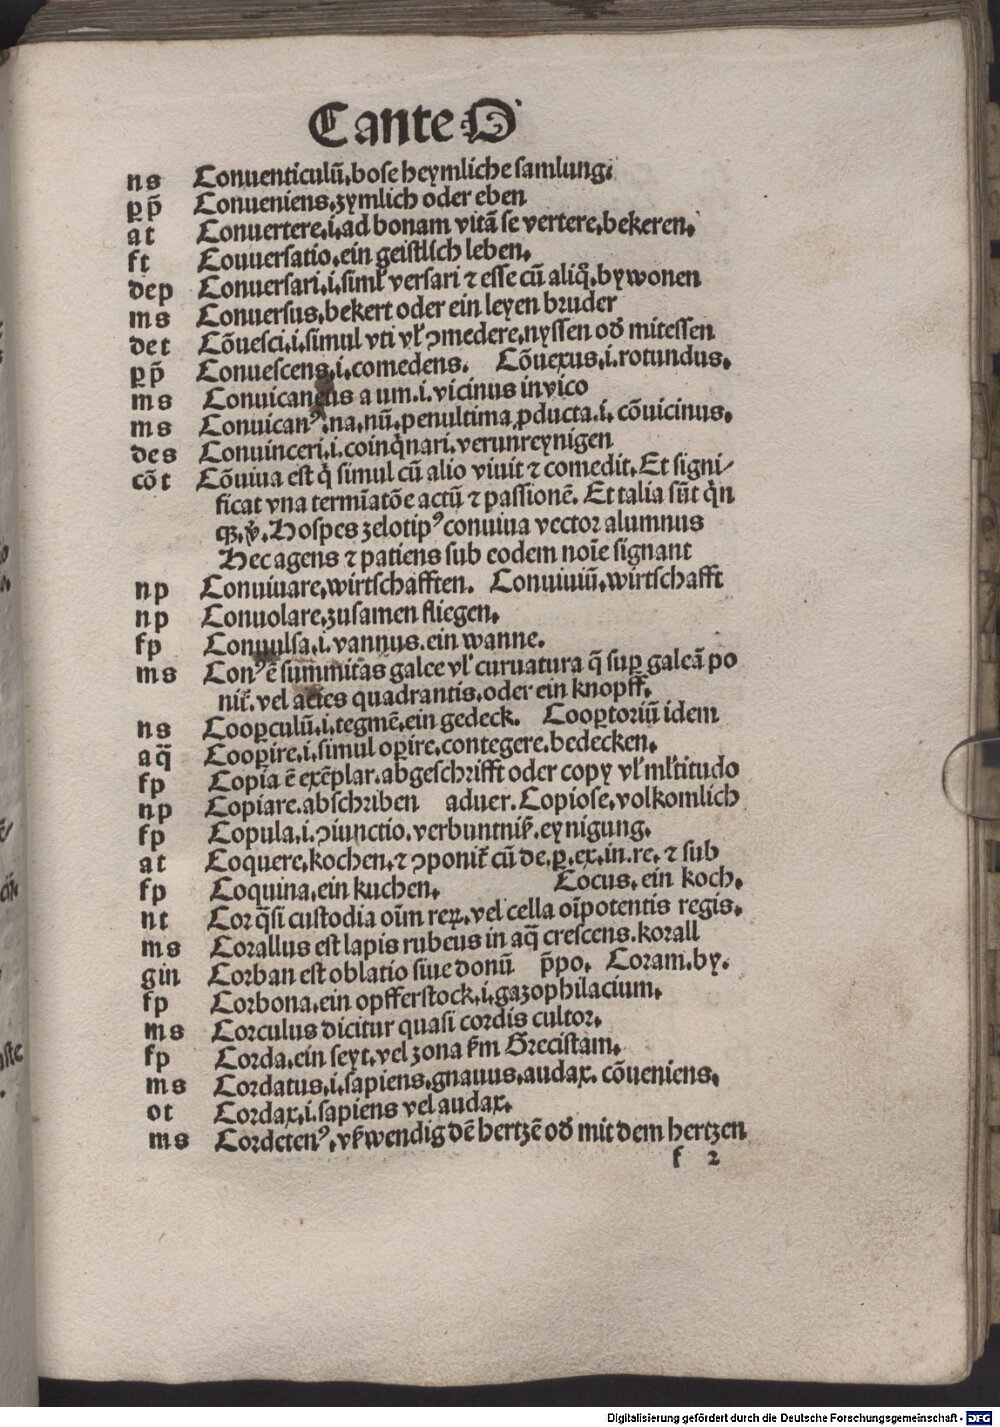 C ante O
ns Conuenticulū.bose heymliche samlung.
ꝑp̄ Conueniens.zymlich oder eben
at Conuertere.i.ad bonam vitā se vertere.bekeren.
ft Couuersatio.ein geistlich leben.
dep Conuersari.i.siml' versari ⁊ esse cū aliq̊.bywonen
ms Conuersus.bekert oder ein leyen bruder
det Cōuesci.i.simul vti vl' ꝯmedere.nyssen od' mitessen
ꝑp̄ Conuescens.i.comedens. Cōuexus.i.rotundus.
ms Conuicaneus a um.i.vicinus in vico
ms Conuicanꝰ.na.nū.penultima ꝓducta.i.cōuicinus.
des Conuinceri.i.coinq̇nari.verunreynigen
cōt Cōuiua est q̇ simul cū alio viuit ⁊ comedit.Et signi⸗
ficat vna termīatōe actū ⁊ passionē.Et talia sūt q̇n
qꝫ.v̄.Hospes zelotipꝰ conuiua vector alumnus
Hec agens ⁊ patiens sub eodem noīe signant
np Conuiuare.wirtschafften. Conuiuiū.wirtschafft
np Conuolare.zusamen fliegen.
fp Conuulsa.i.vannus.ein wanne.
ms Conꝰ ē summitas galee vl' curuatura q̄ suꝑ galeā po
nit̄.vel actes quadrantis.oder ein knopff.
ns Cooꝑculū.i.tegmē.ein gedeck. Cooꝑtoriū idem
aq̄ Cooꝑire.i.simul oꝑire.contegere.bedecken.
fp Copia ē exēplar.abgeschrifft oder copy vl' ml'titudo
np Copiare.abschriben aduer.Copiose.volkomlich
fp Copula.i.ꝯiunctio.verbuntniß.eynigung.
at Coquere.kochen.⁊ ꝯponit̄ cū de.ꝑ.ex.in.re.⁊ sub
fp Coquina.ein kuchen. Cocus.ein koch.
nt Cor q̄si custodia oīm reꝝ.vel cella oīpotentis regis.
ms Corallus est lapis rubeus in aq̄ crescens.korall
gin Corban est oblatio siue donū p̄po. Coram.by.
fp Corbona.ein opfferstock.i.gazophilacium.
ms Corculus dicitur quasi cordis cultor.
fp Corda.ein seyt.vel zona ẜm Grecistam.
ms Cordatus.i.sapiens.gnauus.audax.cōueniens.
ot Cordax.i.sapiens vel audax.
ms Cordetenꝰ.vßwendig dē hertzē od' mit dem hertzen
f 2
Digitalisierung gefördert durch die Deutsche Forschungsgemeinschaft - DFG